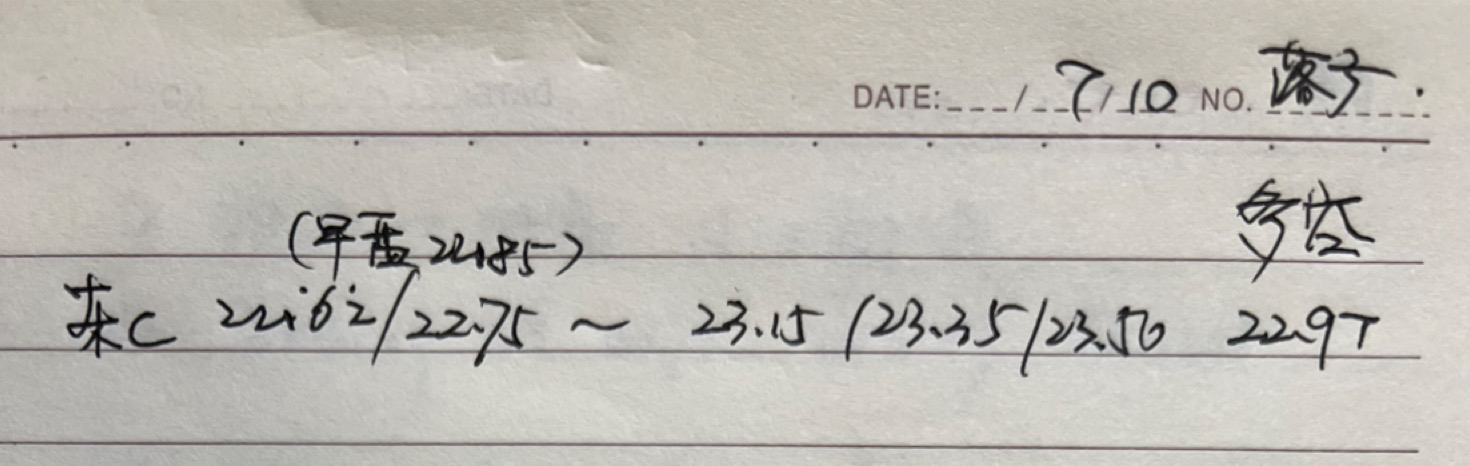 DATE: / 7/10 NO. 落子.
多空
(早盘 22.85)
菜C 22.62/22.75 ~ 23.15/23.35/23.50 22.97